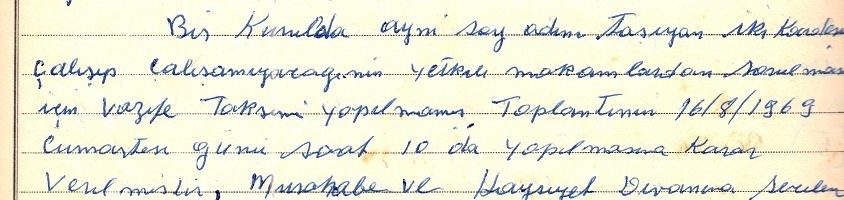 Bir Kurulda ayni soy adını Taşıyan iki Kardeşin
Çalışıp Çalışamıyacağının yetkili makamlardan sorulması
için vazife Taksimi yapılmamış Toplantının 16/8/1969
Cumartesi günü saat 10 da yapılmasına Karar
Verilmiştir, Murakabe ve Haysiyet Divanına seçilen